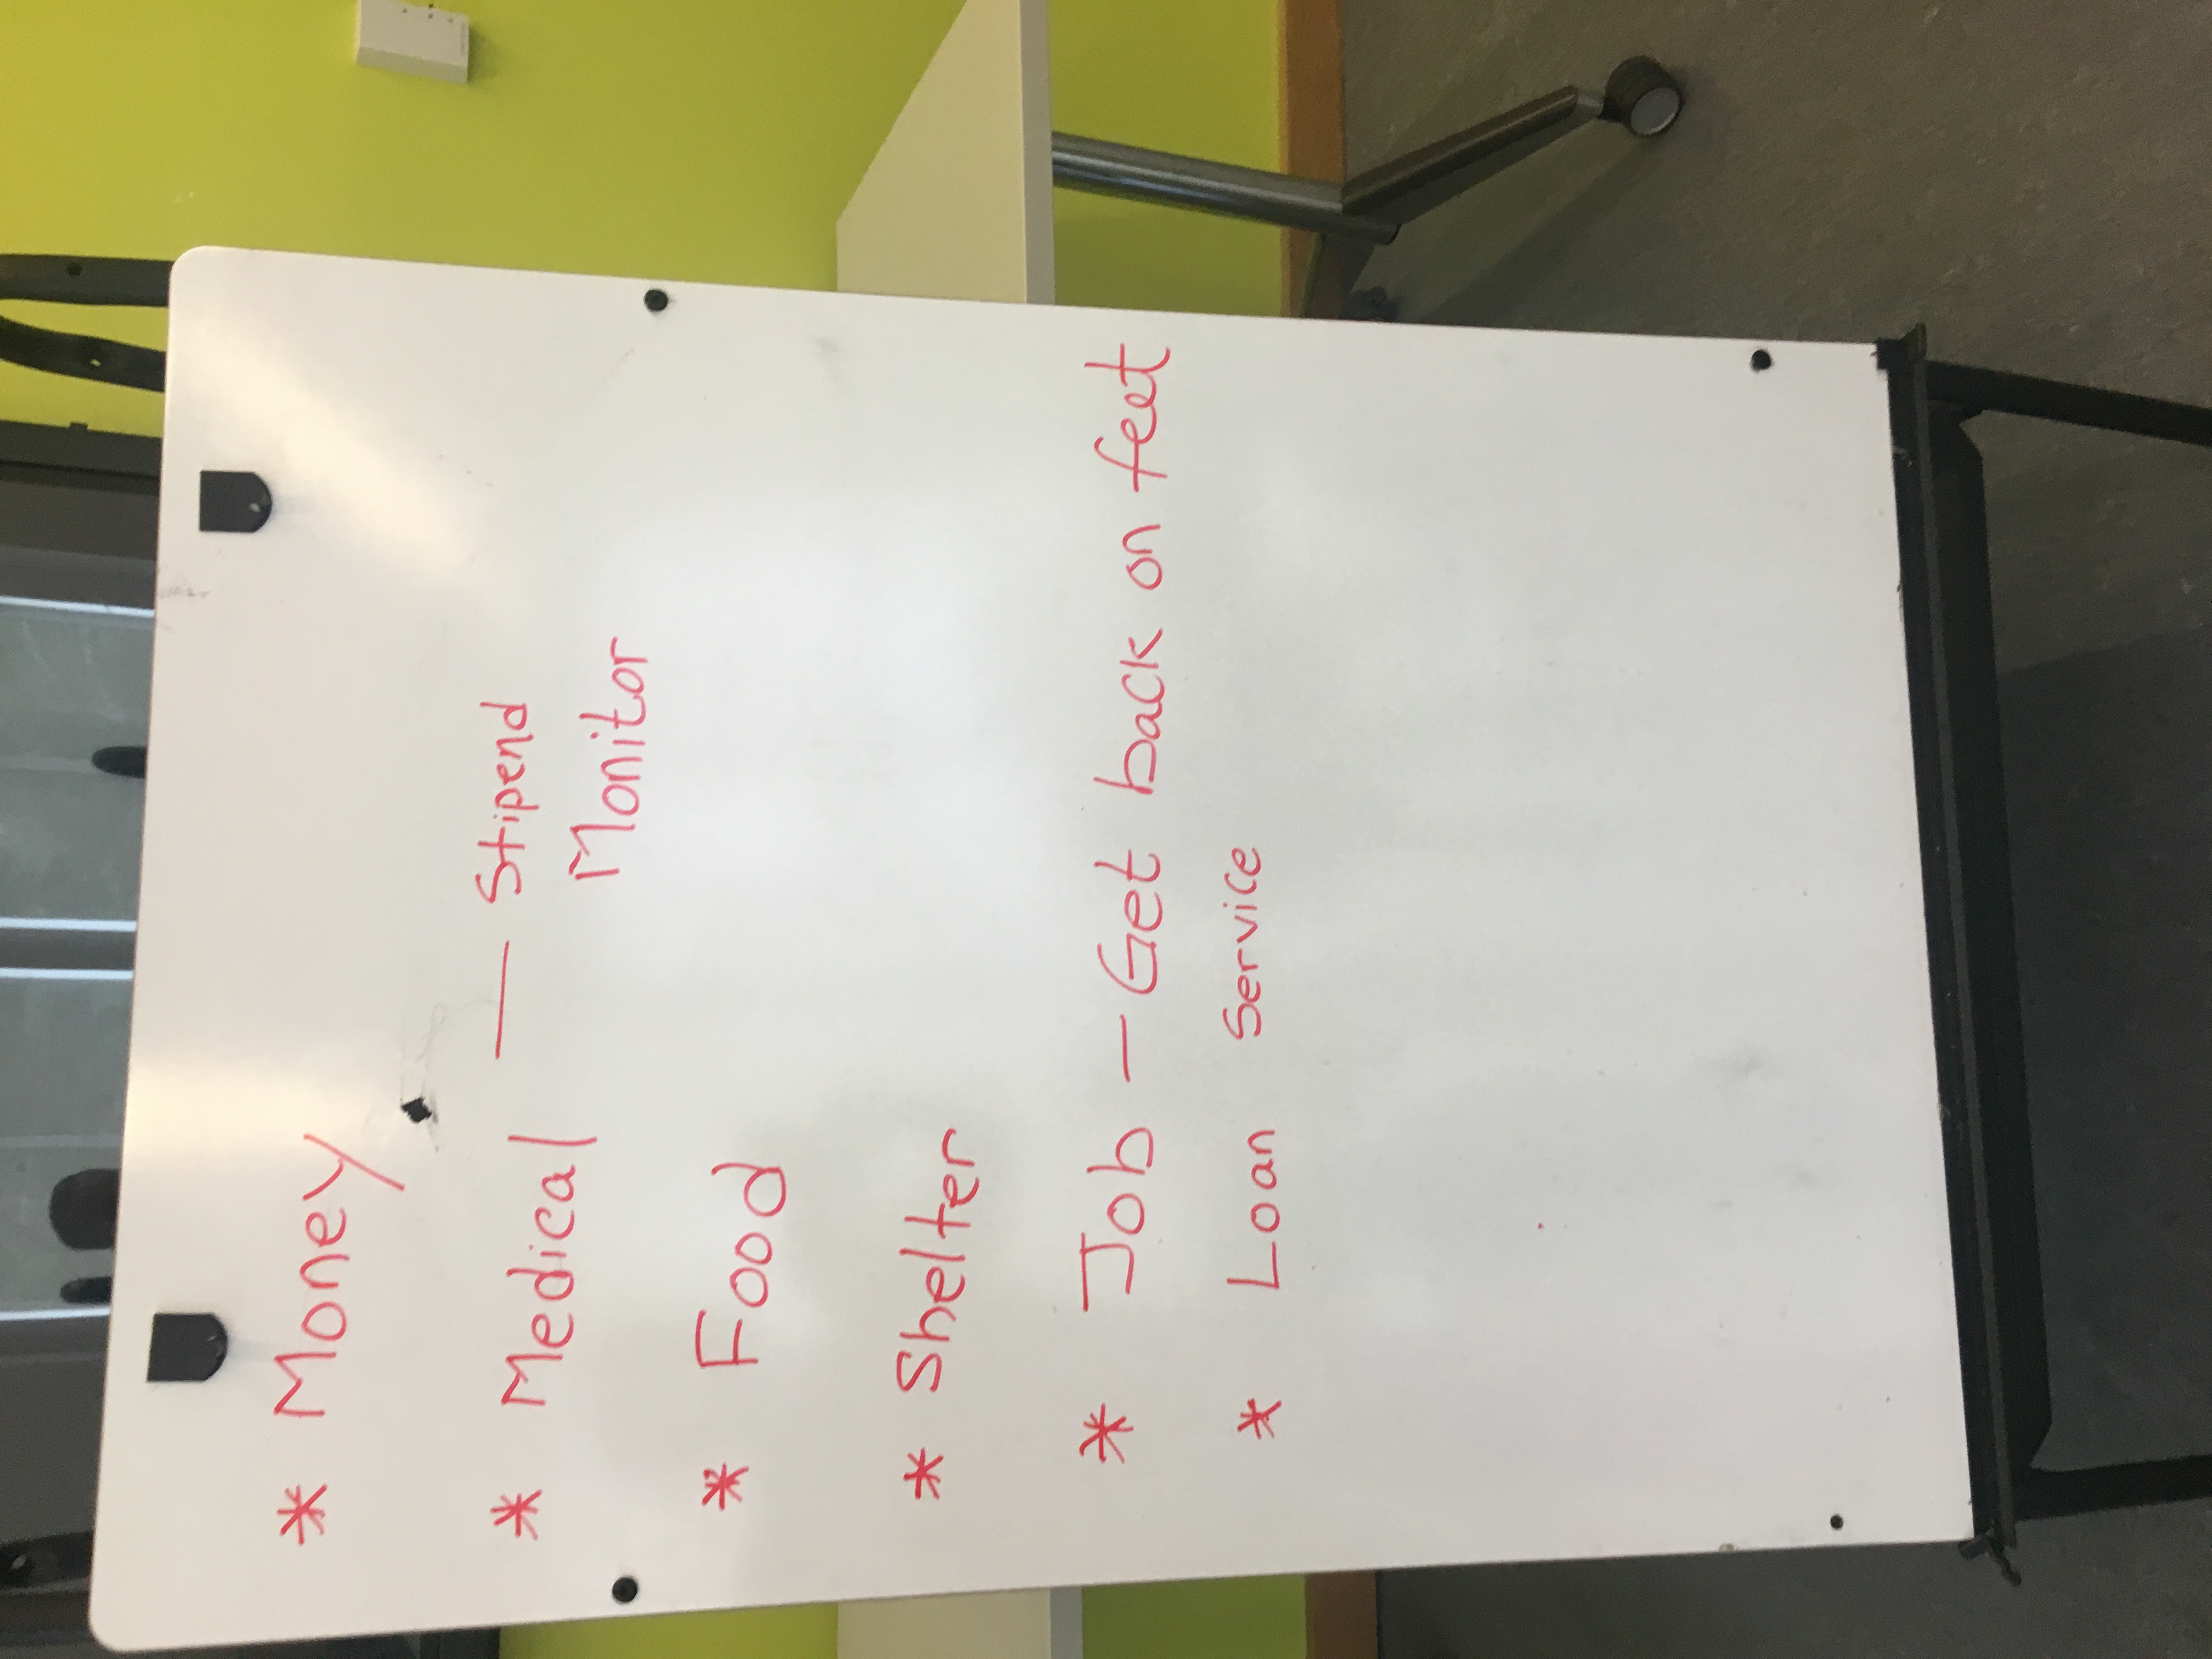 * Money
* Medical — Stipend
Monitor
* Food
* Shelter
* Job - Get back on feet
* Loan Service